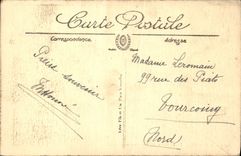 Carte Postale
Correspondance
Adresse
Pieux souvenir
Madame Leromain
99 rue des Piats
Tourcoing
(Nord)